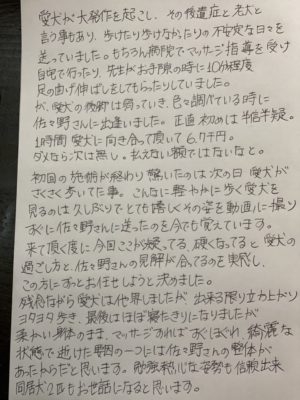 愛犬が大発作を起こし、その後遺症と老犬と
言う事もあり、歩けたり歩けなかったりの不安定な日々を
送っていました。もちろん病院でマッサージ指導を受け
自宅で行ったり、先生がお手隙の時に10分程度
足の曲げ伸ばしをしてもらったりしていました。
が、愛犬の後脚は弱っていき、色々調べている時に
佐々野さんに出逢いました。正直初めは半信半疑。
1時間 愛犬に向き合って頂いて 6.7千円。
ダメなら次は無し。払えない額ではないなと。
初回の施術が終わり驚いたのは次の日 愛犬が
さくさく歩いてた事。こんなに軽やかに歩く愛犬を
見るのは久しぶりでとても嬉しくその姿を動画に撮り
すぐに佐々野さんに送ったのを今でも覚えています。
来て頂く度に今回ここが張ってる、硬くなってると愛犬の
過ごし方と、佐々野さんの見解が合ってるのを実感し、
この方にずっとお任せしようと決めました。
残念ながら愛犬は他界しましたが 出来る限り立ち上がり
ヨタヨタ歩き、最後はほぼ寝たきりになりましたが
柔かい身体のまま、マッサージすればすぐほぐれ、綺麗な
状態で逝けた要因の一つには佐々野さんの整体が
あったからだと思います。勉強熱心な姿勢も信頼出来
同居犬2匹もお世話になると思います。